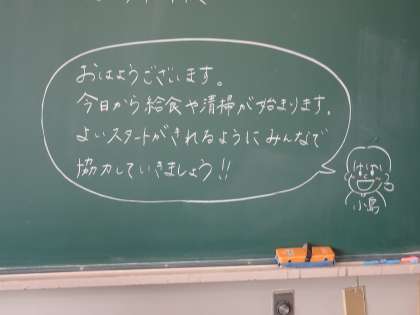 おはようございます。
今日から給食や清掃が始まります。
よいスタートがきれるようにみんなで
協力していきましょう!!
小島